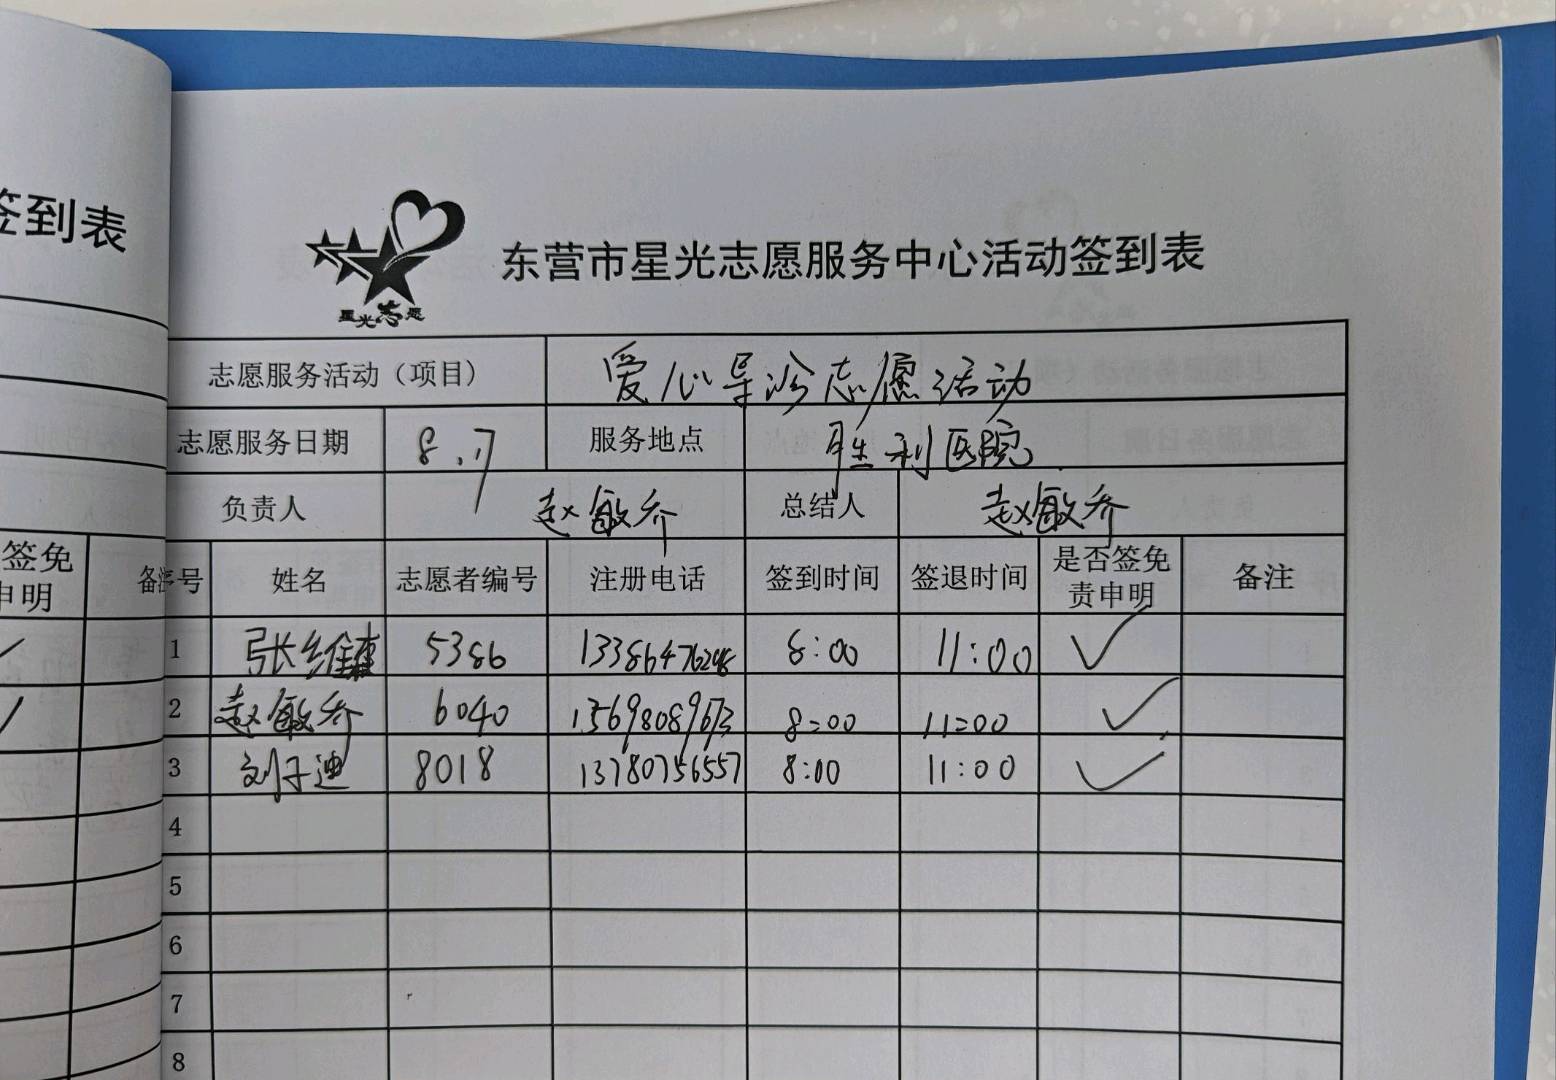 签到表
签免
申明
备注
星光志愿
东营市星光志愿服务中心活动签到表
志愿服务活动（项目） 爱心导诊志愿活动
志愿服务日期 8.17 服务地点 胜利医院
负责人 赵敏乔 总结人 赵敏乔
序号 姓名 志愿者编号 注册电话 签到时间 签退时间 是否签免责申明 备注
1 张维 5386 13386476298 8:00 11:00 ✓
2 赵敏乔 6040 13698089673 8:00 11:00 ✓
3 刘子迪 8018 13780756557 8:00 11:00 ✓
4
5
6
7
8